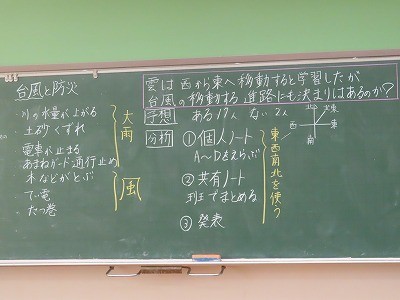 台風と防災
川の水量が上がる
土砂くずれ
大雨
電車が止まる
あまねガード通行止め
木などがとぶ
てい電
たつ巻
風
雲は西から東へ移動すると学習したが
台風の移動する進路にも決まりはあるのか?
予想 ある17人 ない2人
分析 ①個人ノート
A〜Dをえらぶ
②共有ノート
班でまとめる
③発表
北
東
西
南
東西南北を使う